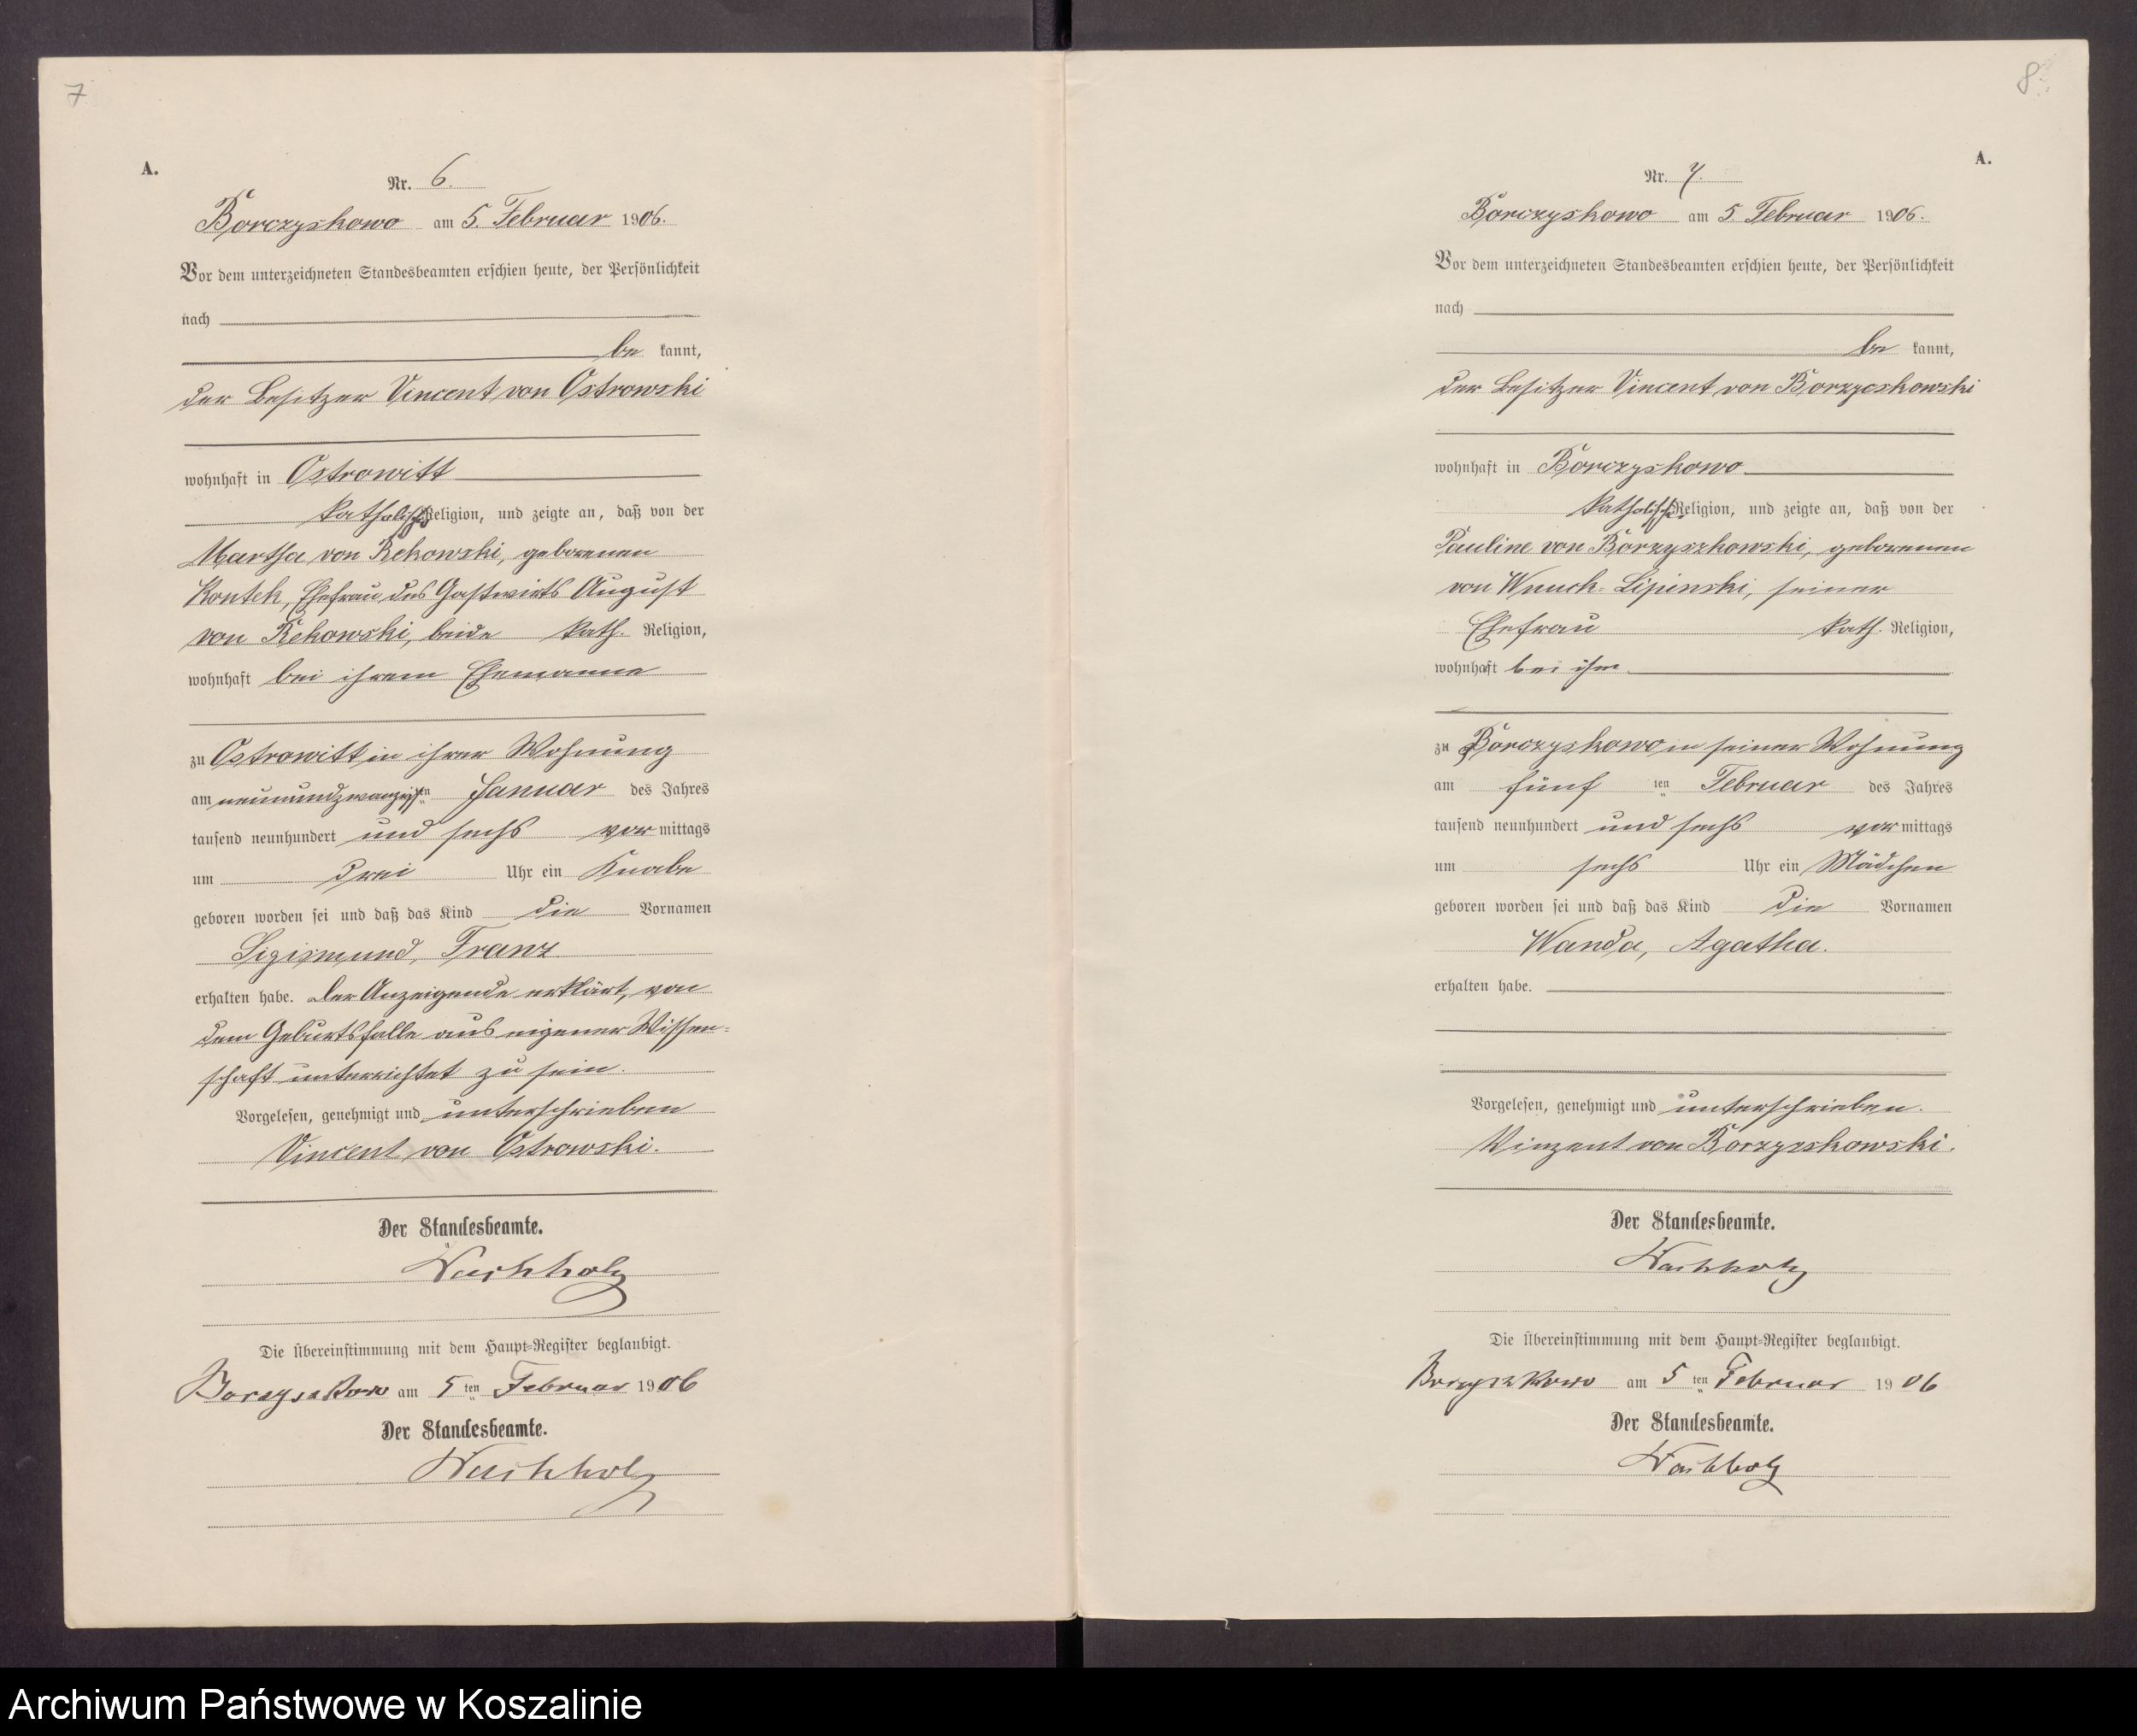 7
A.
Nr. 6.
Borczyskowo am 5. Februar 1906.
Vor dem unterzeichneten Standesbeamten erschien heute, der Persönlichkeit
nach
be kannt,
der Besitzer Vincent von Ostrowski
wohnhaft in Ostrowitt
katholischer Religion, und zeigte an, daß von der
Martha von Rekowski, geborenen
Kontek, Ehefrau des Gastwirts August
von Rekowski, beide kath. Religion,
wohnhaft bei ihrem Ehemanne
zu Ostrowitt in ihrer Wohnung
am neunundzwanzigsten Januar des Jahres
tausend neunhundert und sechs vor mittags
um drei Uhr ein Knabe
geboren worden sei und daß das Kind die Vornamen
Sigismund, Franz
erhalten habe. Der Anzeigende erklärt, von
dem Geburtsfalle aus eigener Wissen-
schaft unterrichtet zu sein.
Vorgelesen, genehmigt und unterschrieben
Vincent von Ostrowski.
Der Standesbeamte.
Wachholz
Die Übereinstimmung mit dem Haupt-Register beglaubigt.
Borzyszkowo am 5 ten Februar 1906
Der Standesbeamte.
Wachholz
8
A.
Nr. 7.
Borczyskowo am 5. Februar 1906.
Vor dem unterzeichneten Standesbeamten erschien heute, der Persönlichkeit
nach
be kannt,
der Besitzer Vincent von Borzyskowski
wohnhaft in Borczyskowo
katholischer Religion, und zeigte an, daß von der
Pauline von Borzyszkowski, geborenen
von Wnuck-Lipinski, seiner
Ehefrau kath. Religion,
wohnhaft bei ihm
zu Borczyskowo in seiner Wohnung
am fünf ten Februar des Jahres
tausend neunhundert und sechs vor mittags
um sechs Uhr ein Mädchen
geboren worden sei und daß das Kind die Vornamen
Wanda, Agatha.
erhalten habe.
Vorgelesen, genehmigt und unterschrieben.
Vinzent von Borzyskowski.
Der Standesbeamte.
Wachholz
Die Übereinstimmung mit dem Haupt-Register beglaubigt.
Borzyszkowo am 5 ten Februar 1906
Der Standesbeamte.
Wachholz
Archiwum Państwowe w Koszalinie